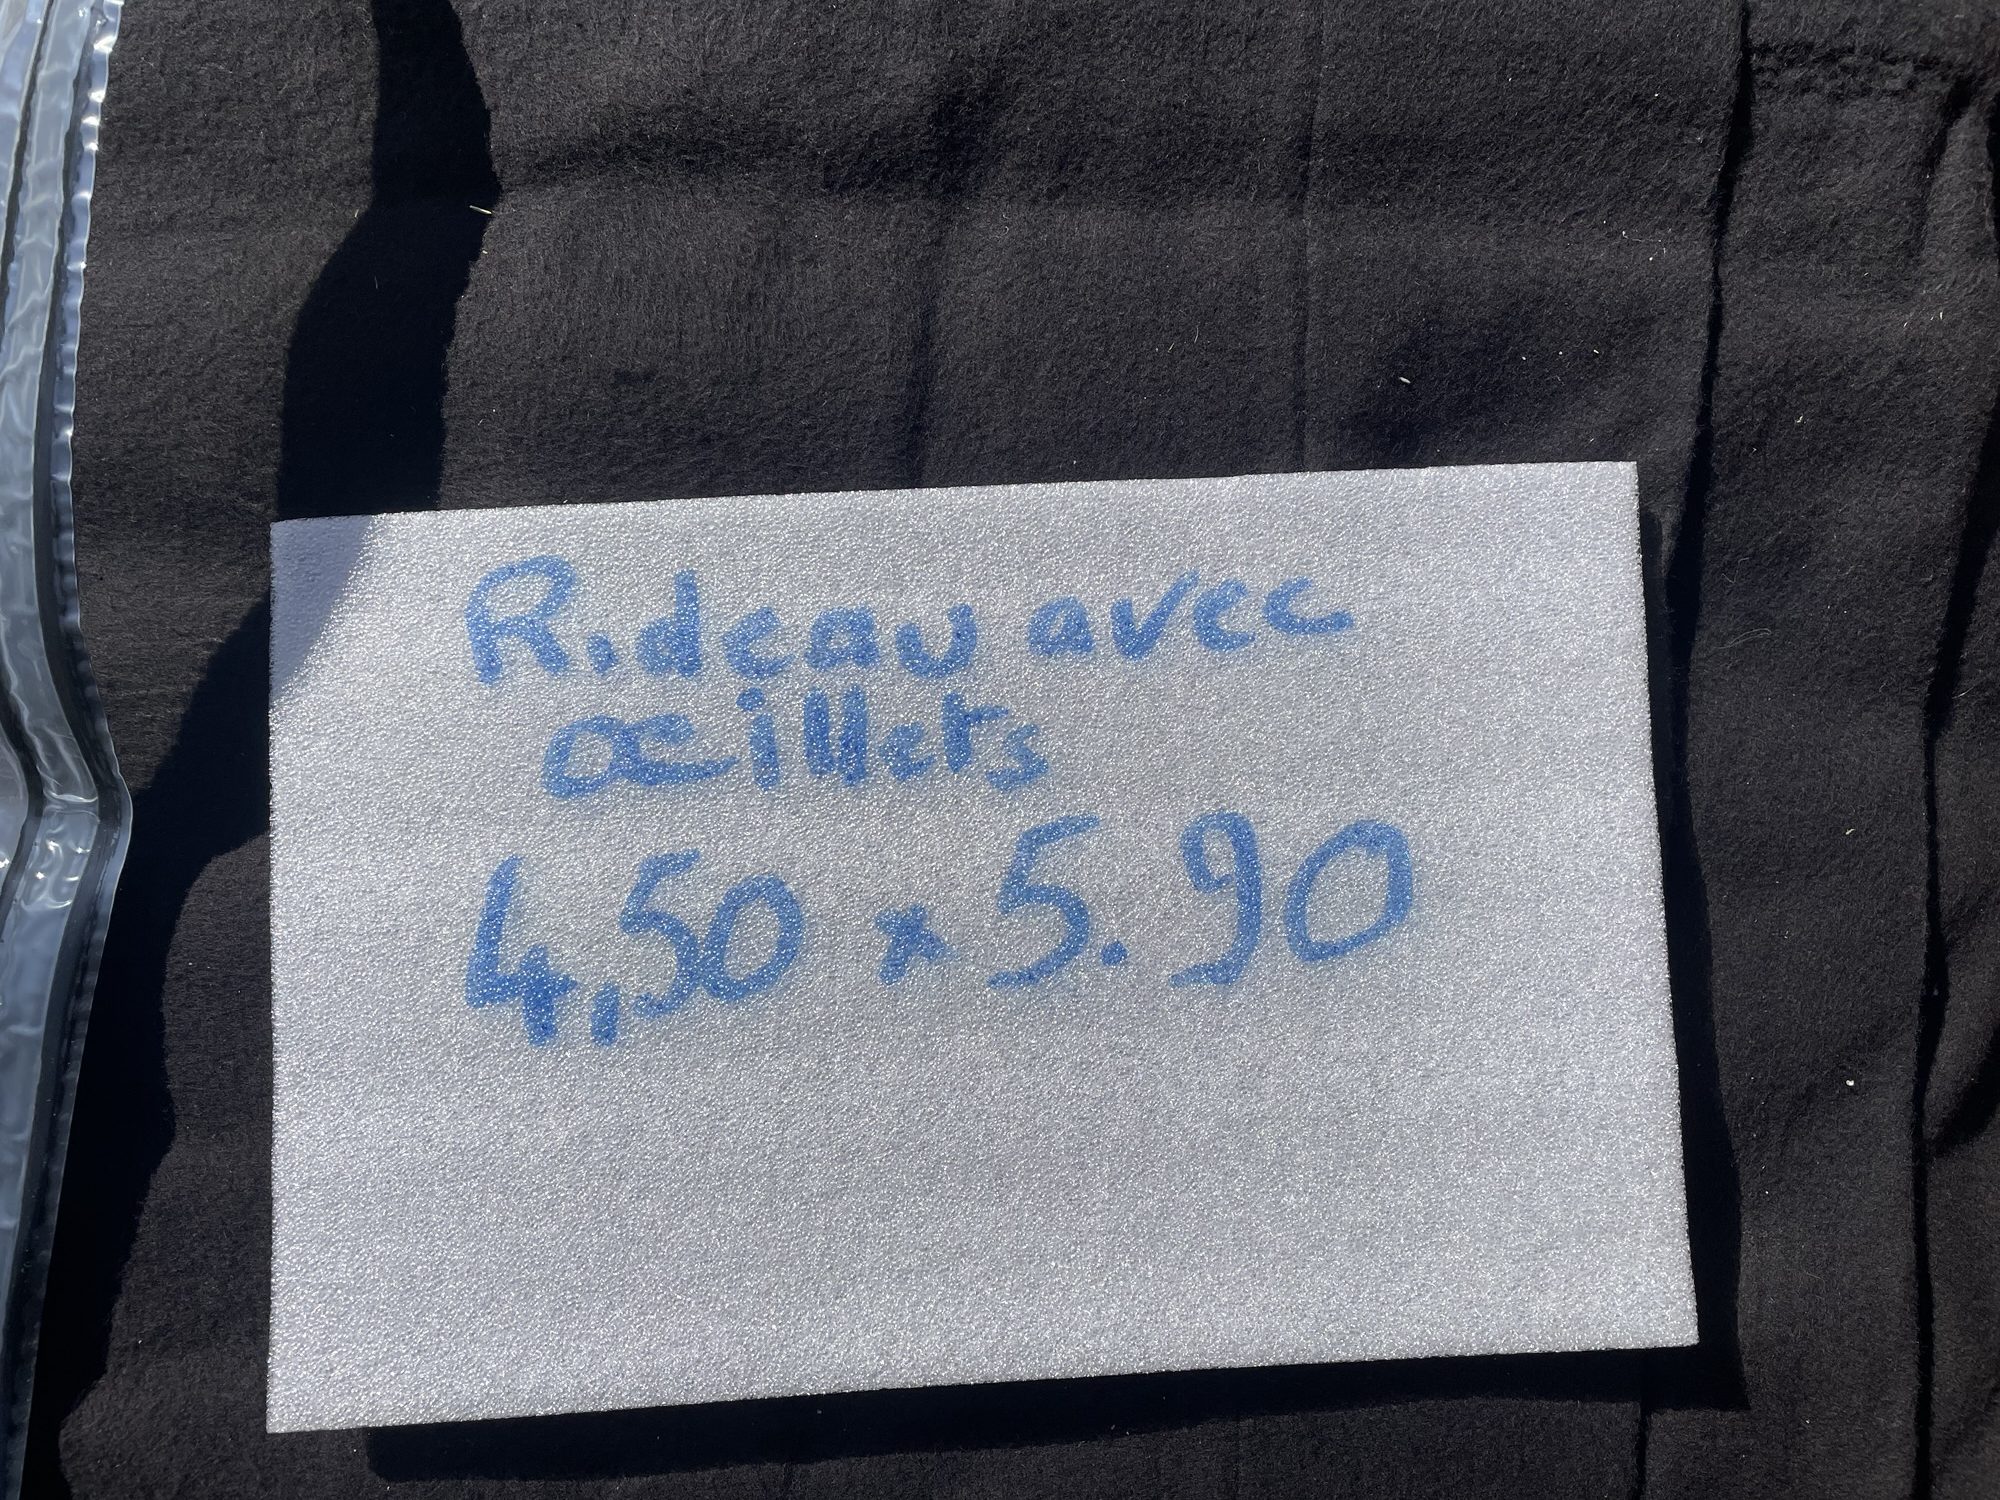 Rideau avec
œillets
4,50 x 5.90